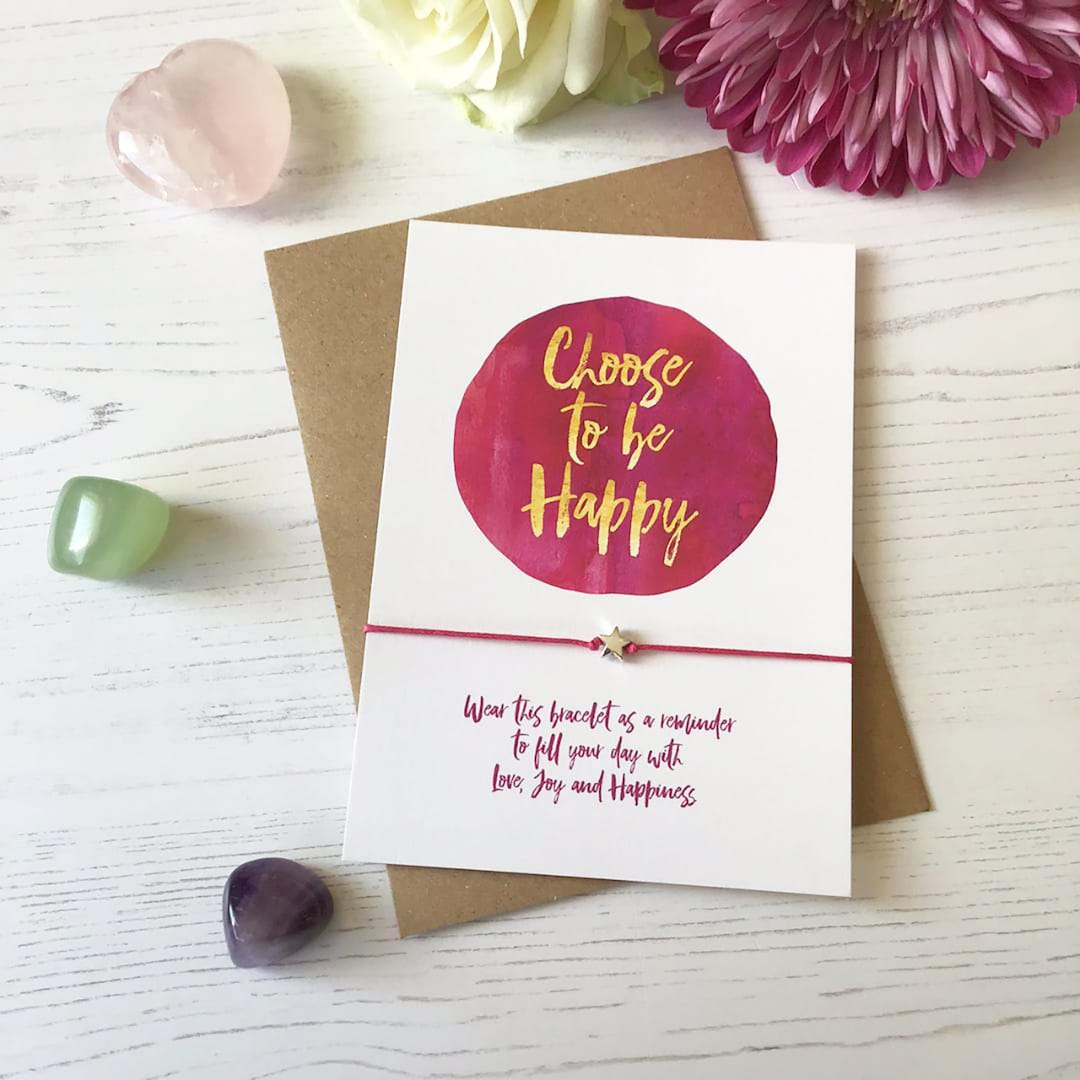 Choose
to be
Happy
Wear this bracelet as a reminder
to fill your day with
Love, Joy and Happiness